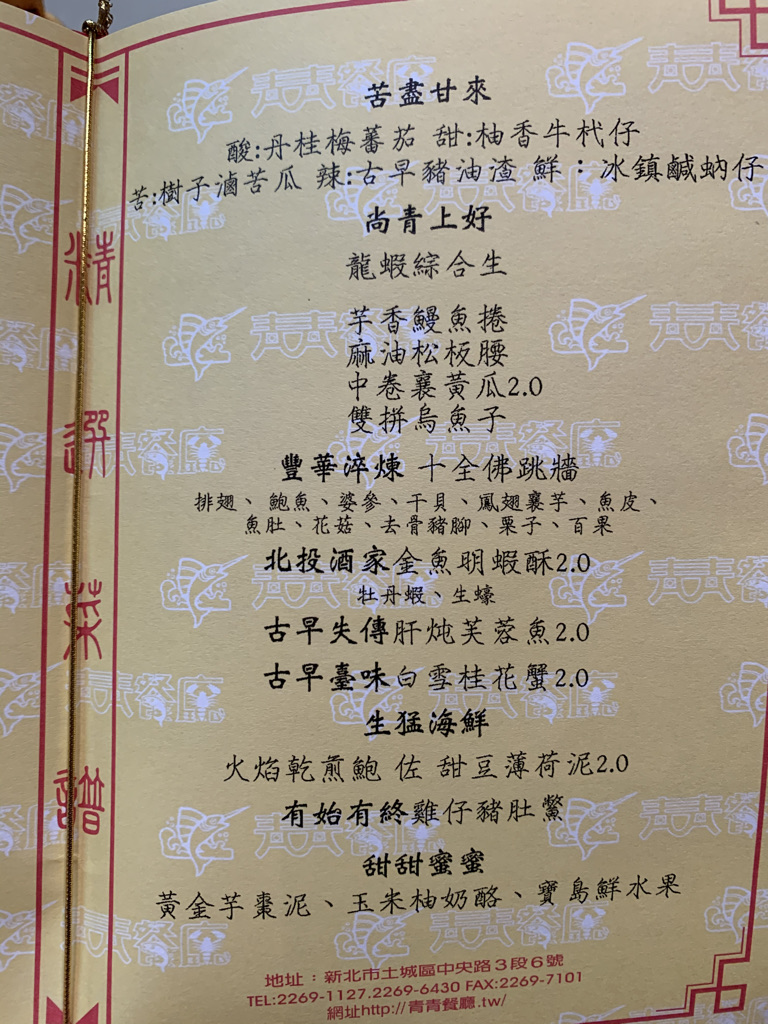 精選菜譜
苦盡甘來
酸:丹桂梅蕃茄 甜:柚香牛杙仔
苦:樹子滷苦瓜 辣:古早豬油渣 鮮：冰鎮鹹蚋仔
尚青上好
龍蝦綜合生
芋香鰻魚捲
麻油松板腰
中卷襄黃瓜2.0
雙拼烏魚子
豐華淬煉 十全佛跳牆
排翅、鮑魚、婆參、干貝、鳳翅襄芋、魚皮、
魚肚、花菇、去骨豬腳、栗子、百果
北投酒家金魚明蝦酥2.0
牡丹蝦、生蠔
古早失傳肝炖芙蓉魚2.0
古早臺味白雪桂花蟹2.0
生猛海鮮
火焰乾煎鮑 佐 甜豆薄荷泥2.0
有始有終雞仔豬肚鱉
甜甜蜜蜜
黃金芋棗泥、玉米柚奶酪、寶島鮮水果
地址：新北市土城區中央路3段6號
TEL:2269-1127.2269-6430 FAX:2269-7101
網址http://青青餐廳.tw/